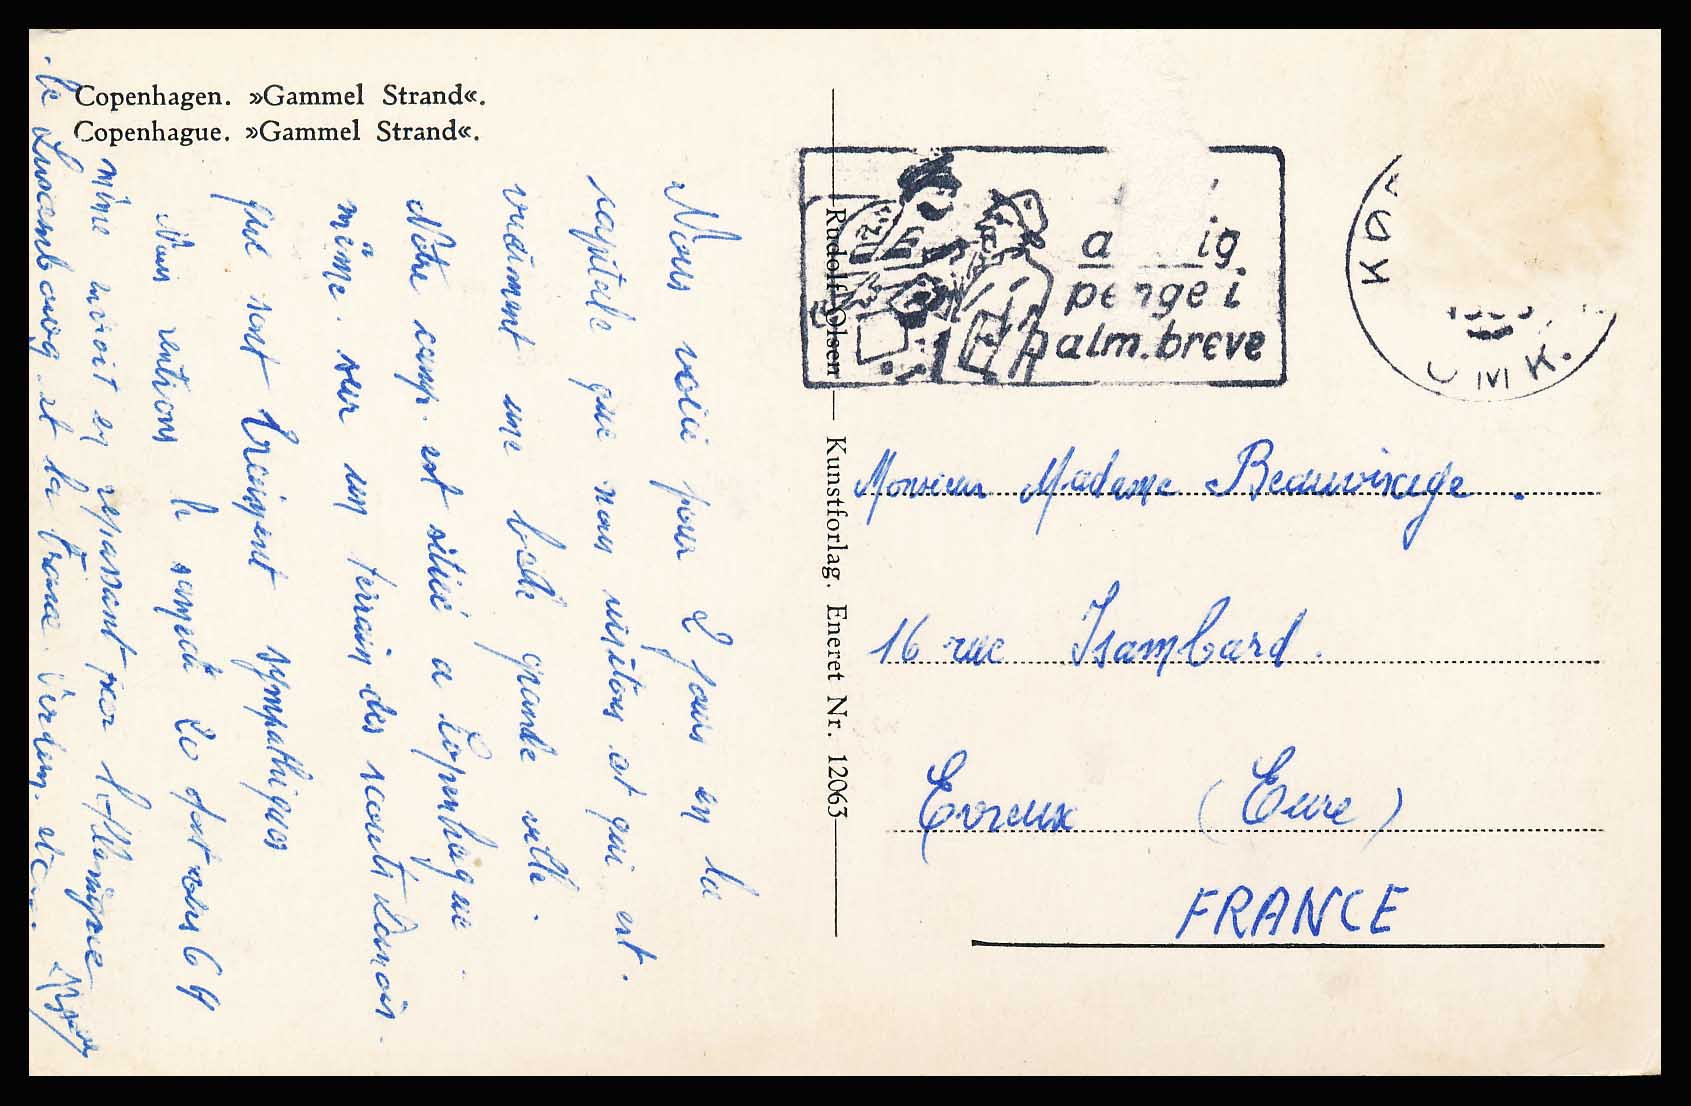 Copenhagen. »Gammel Strand«.
Copenhague. »Gammel Strand«.
Nous voici pour 2 jours en la
capitale que nous visitons et qui est.
vraiment une belle grande ville.
Notre camp est situé a Copenhague.
même sur un terrain des scouts Danois.
qui sont vraiment sympathiques
Nous rentrons le samedi 20 Aout vers 6 H
en repassant par l'Allemagne
le Luxembourg et la France Verdun. etc...
Rudolf Olsen — Kunstforlag. Eneret Nr. 12063
a ig
pe nge i
alm. breve
K
M K.
Monsieur Madame
16 rue Isambard.
Evreux (Eure)
FRANCE